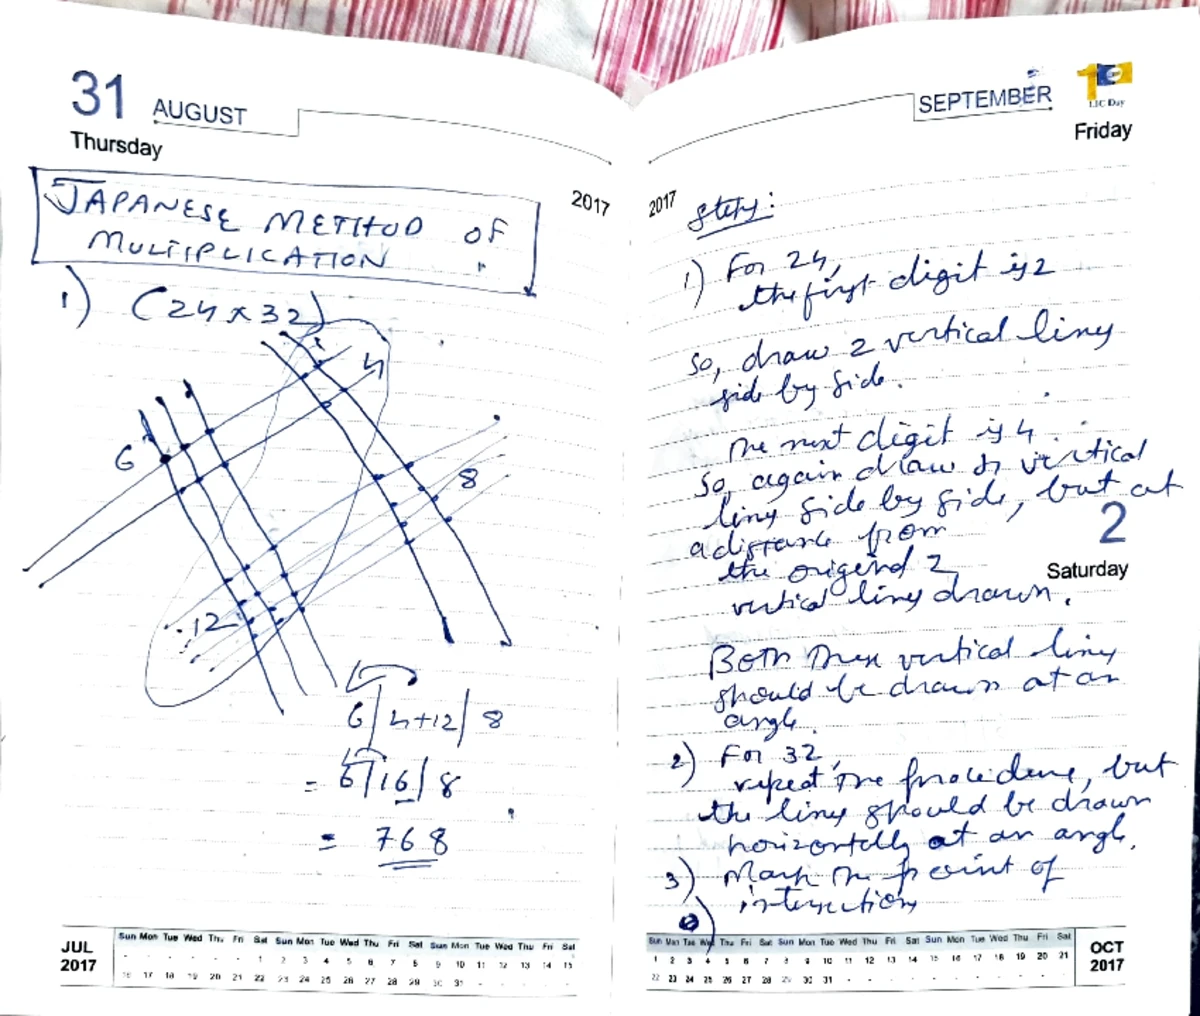 31 AUGUST
Thursday
2017
JAPANESE METHOD OF
MULTIPLICATION
1) (24 x 32)
4
6
8
12
6 | 4+12 | 8
= 6 | 16 | 8
= 768
JUL
2017
Sun Mon Tue Wed Thu Fri Sat Sun Mon Tue Wed Thu Fri Sat Sun Mon Tue Wed Thu Fri Sat
. . . . . . 1 2 3 4 5 6 7 8 9 10 11 12 13 14 15
16 17 18 19 20 21 22 23 24 25 26 27 28 29 30 31 . . . . .
SEPTEMBER
LIC Day
Friday
2017
Steps:
1) For 24,
the first digit is 2
So, draw 2 vertical lines
side by side.
The next digit is 4.
So, again draw 4 vertical
lines side by side, but at
a distance from
2
the origend 2
Saturday
vertical lines drawn.
Both these vertical lines
should be drawn at an
angle.
2) For 32,
repeat the procedure, but
the lines should be drawn
horizontally at an angle.
3) Mark the point of
intersections
Sun Mon Tue Wed Thu Fri Sat Sun Mon Tue Wed Thu Fri Sat Sun Mon Tue Wed Thu Fri Sat
1 2 3 4 5 6 7 8 9 10 11 12 13 14 15 16 17 18 19 20 21
22 23 24 25 26 27 28 29 30 31 . . . . . . . . . . .
OCT
2017